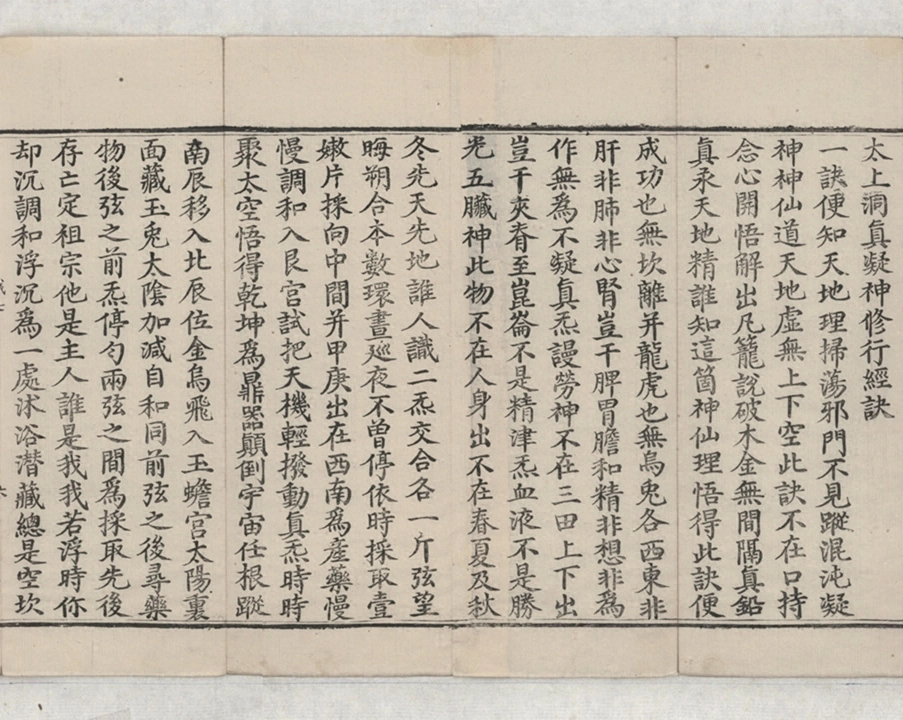 太上洞眞凝神修行經訣
一訣便知天地理掃蕩邪門不見蹤混沌凝
神神仙道天地虛無上下空此訣不在口持
念心開悟解出凡籠說破木金無間隔眞鉛
眞汞天地精誰知這箇神仙理悟得此訣便
成功也無坎離并龍虎也無烏兔各西東非
肝非肺非心腎豈干脾胃膽和精非想非爲
作無爲不凝眞炁謾勞神不在三田上下出
豈干夾脊至崑崙不是精津炁血液不是勝
光五臟神此物不在人身出不在春夏及秋
冬先天先地誰人識二炁交合各一斤弦望
晦朔合本數環晝廵夜不曾停依時採取壹
嫩片採向中間并甲庚出在西南爲産藥慢
慢調和入艮宮試把天機輕撥動眞炁時時
聚太空悟得乾坤爲鼎器顛倒宇宙任根蹤
南辰移入北辰位金烏飛入玉蟾宮太陽裏
面藏玉兔太陰加減自和同前弦之後尋藥
物後弦之前炁停勻兩弦之間爲採取先後
存亡定祖宗他是主人誰是我我若浮時你
却沉調和浮沉爲一處沭浴潜藏總是空坎